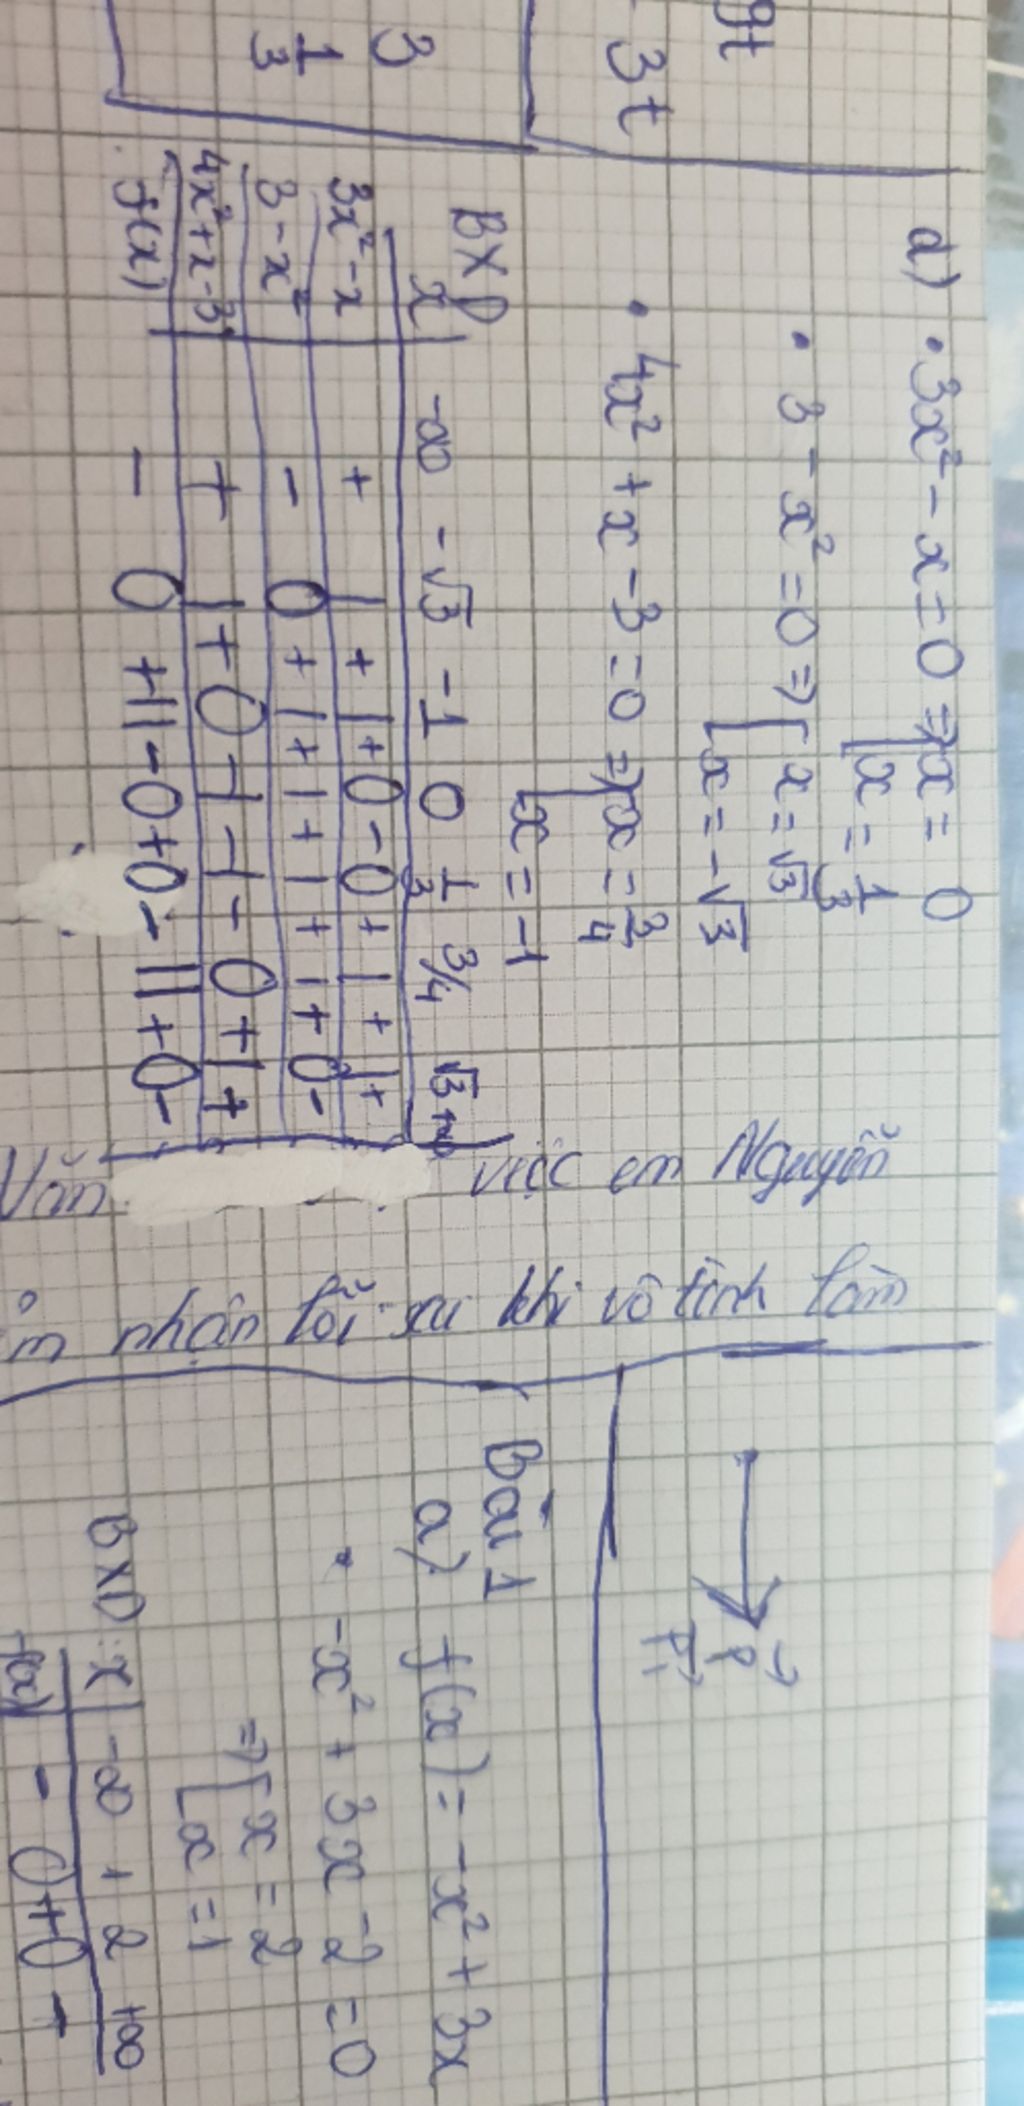 gt
3t
3
1/3
d) • 3x² - x = 0 => [ x = 0
[ x = 1/3
• 3 - x² = 0 => [ x = √3
[ x = -√3
• 4x² + x - 3 = 0 => [ x = 3/4
[ x = -1
BXD
x | -∞ -√3 -1 0 1/3 3/4 √3 +∞
3x² - x | + | + | + 0 - 0 + | + | +
3 - x² | - 0 + | + | + | + | + 0 -
4x² + x - 3 | + | + 0 - | - | - 0 + | +
f(x) | - 0 + || - 0 + 0 - || + 0 -
việc em Nguyễn
Văn
nhận lỗi sau khi vô tình làm
P
P₁
Bài 1
a) f(x) = -x² + 3x
• -x² + 3x - 2 = 0
=> [ x = 2
[ x = 1
BXD: x | -∞ 1 2 +∞
f(x) | - 0 + 0 -